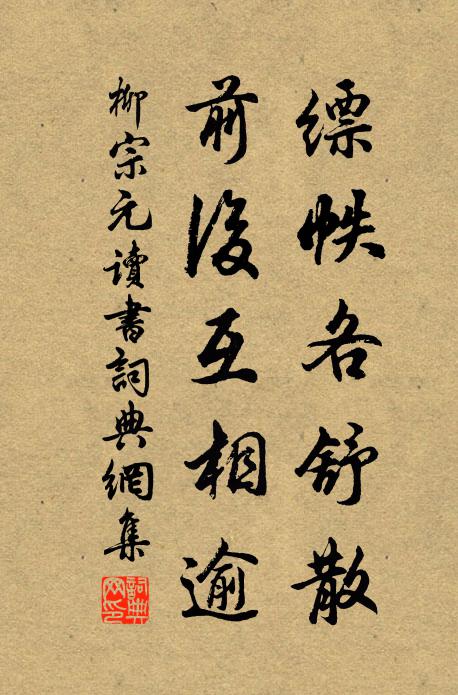 缥帙各舒散
前後互相逾
柳宗元讀書詞典網集
詞典网印